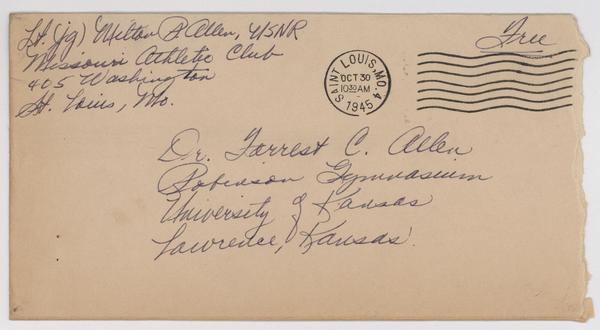 Lt. (jg) Milton P. Allen, USNR
Missouri Athletic Club
405 Washington
St. Louis, Mo.
Free
SAINT LOUIS, MO. 4
OCT 30
10 30 AM
1945
Dr. Forrest C. Allen
Robinson Gymnasium
University of Kansas
Lawrence, Kansas.